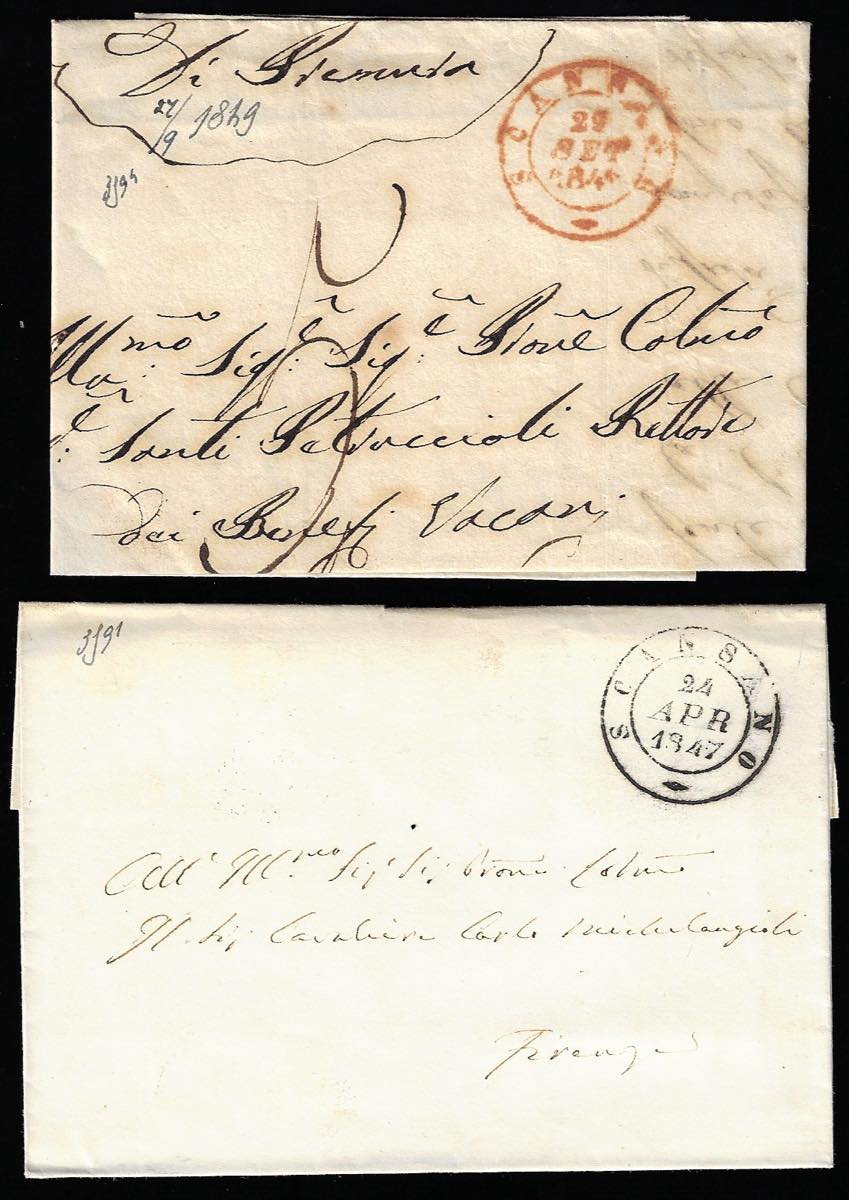 Di Premura
27/9 1849
SCANSANO
29
SET
184
Sig.r Sig.r Prõne Colmo
Santi Petruccioli Rettore
dei Benefj Vacanj
3591
SCANSANO
24
APR
1847
All' Ill.mo Sig.r Sig. Prone Colmo
Il Sig. Cavaliere Carlo Michelangioli
Firenze